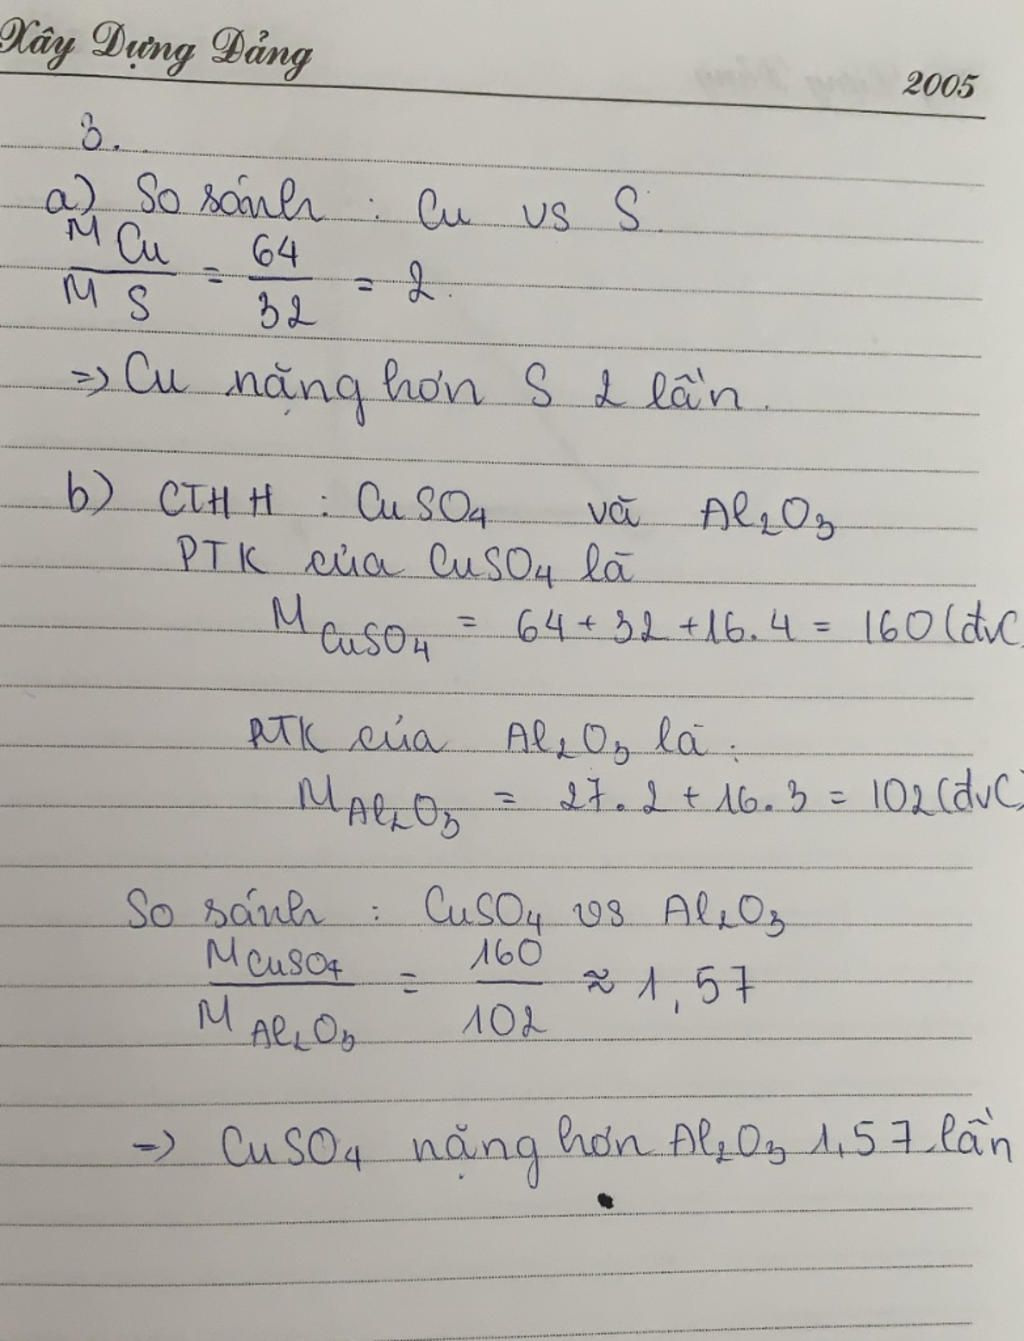 Xây Dựng Đảng
2005
3.
a) So sánh : Cu vs S.
M Cu / M S = 64 / 32 = 2.
=> Cu nặng hơn S 2 lần.
b) CTHH : CuSO₄ và Al₂O₃
PTK của CuSO₄ là
M CuSO₄ = 64 + 32 + 16.4 = 160 (đvC)
PTK của Al₂O₃ là :
M Al₂O₃ = 27.2 + 16.3 = 102 (đvC)
So sánh : CuSO₄ vs Al₂O₃
M CuSO₄ / M Al₂O₃ = 160 / 102 ≈ 1,57
=> CuSO₄ nặng hơn Al₂O₃ 1,57 lần